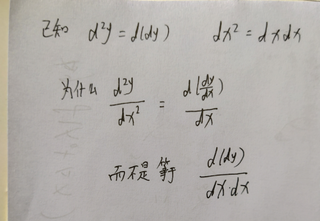 已知 d²y = d(dy) dx² = dxdx
为什么 \frac{d²y}{dx²} = \frac{d(\frac{dy}{dx})}{dx}
而不是等于 \frac{d(dy)}{dx·dx}